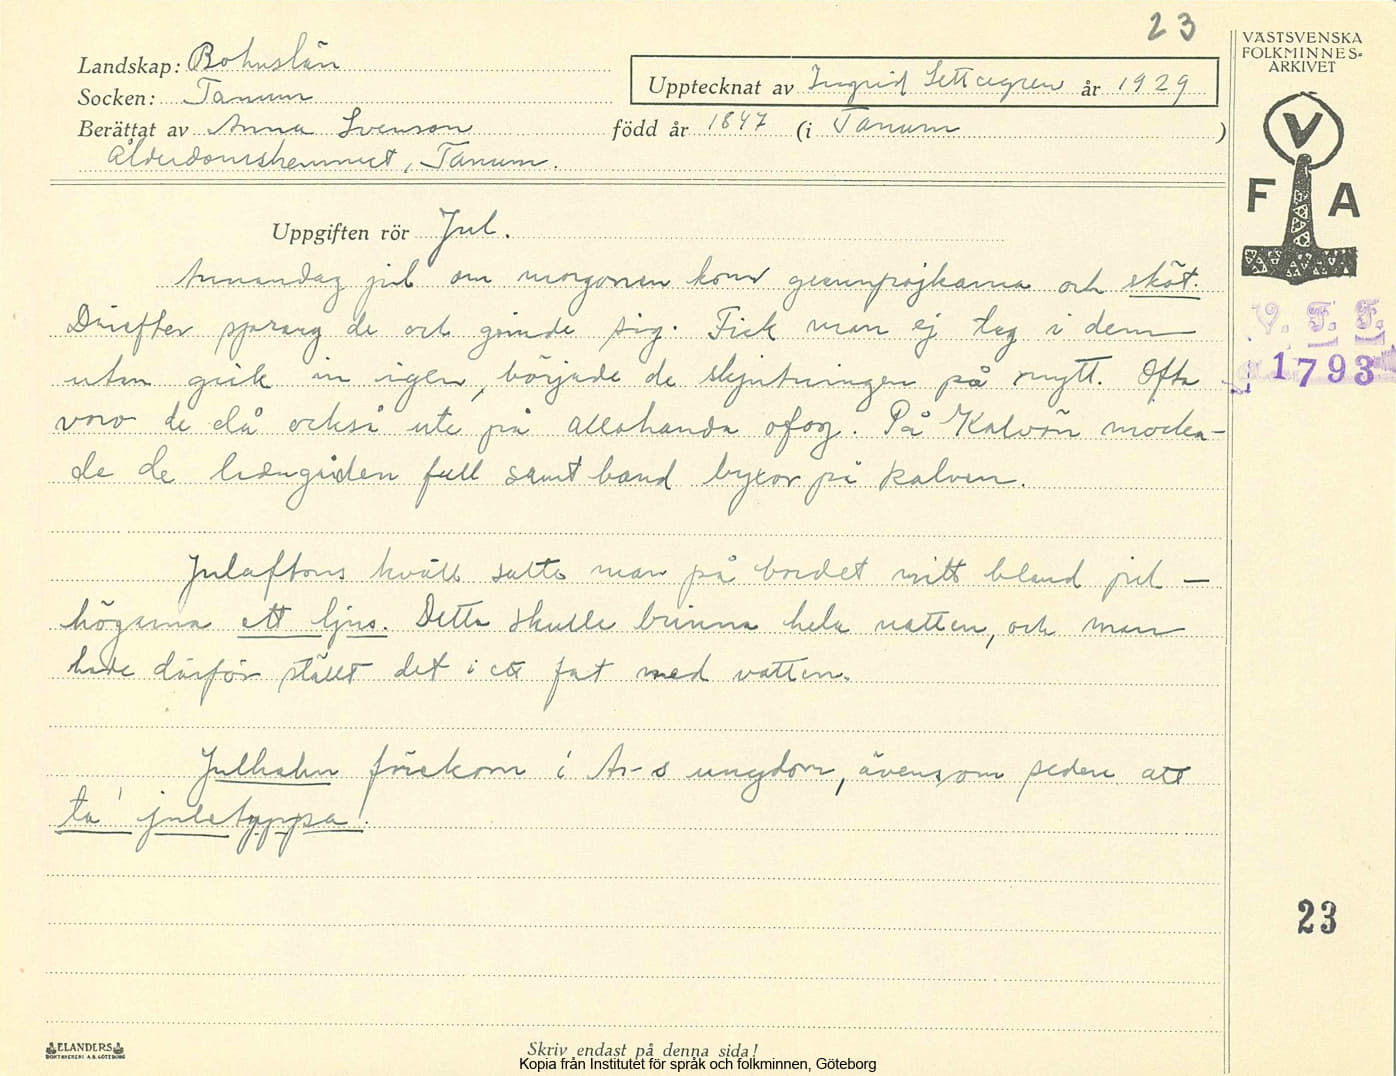 23
VÄSTSVENSKA
FOLKMINNES-
ARKIVET
Landskap: Bohuslän
Upptecknat av Ingrid år 1929
Socken: Tanum
Berättat av Anna Svenson född år 1847 (i Tanum )
Ålderdomshemmet, Tanum.
V
F A
Uppgiften rör Jul.
Annandag jul om morgonen kom grannpojkarna och sköt.
Därefter sprang de och gömde sig. Fick man ej tag i dem
V. F. F.
1793
utan gick in igen, började de skjutningen på nytt. Ofta
voro de då också ute på allahanda ofog. På Kalvön mocka-
de de full samt band byxor på kalven.
Julaftons kväll satte man på bordet mitt bland jul-
högarna ett ljus. Detta skulle brinna hela natten, och man
hade därför ställt det i ett fat med vatten.
Julhalm förekom i A-s ungdom, ävensom seden att
ta' julatyppa.
23
ELANDERS
BOKTRYCKERI A.B. GÖTEBORG
Skriv endast på denna sida!
Kopia från Institutet för språk och folkminnen, Göteborg